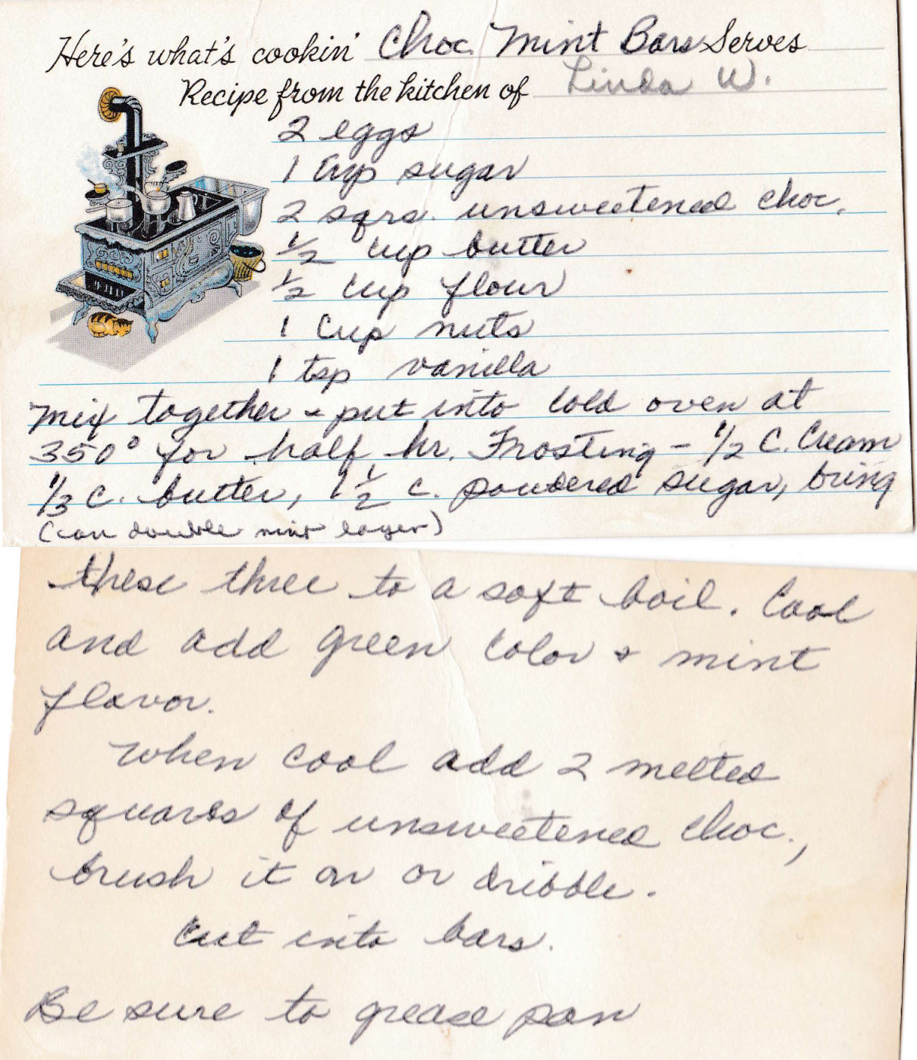 Here's what's cookin' Choc. Mint Bars Serves
Recipe from the kitchen of Linda W.
2 eggs
1 cup sugar
2 sqrs. unsweetened choc.
1/2 cup butter
1/2 cup flour
1 Cup nuts
1 tsp vanilla
Mix together & put into cold oven at
350° for half hr. Frosting - 1/2 C. Cream
1/3 c. butter, 1 1/2 c. powdered sugar, bring
(can double mint layer)
these three to a soft boil. Cool
and add green color & mint
flavor.
When cool add 2 melted
squares of unsweetened choc.,
brush it on or dribble.
Cut into bars.
Be sure to grease pan